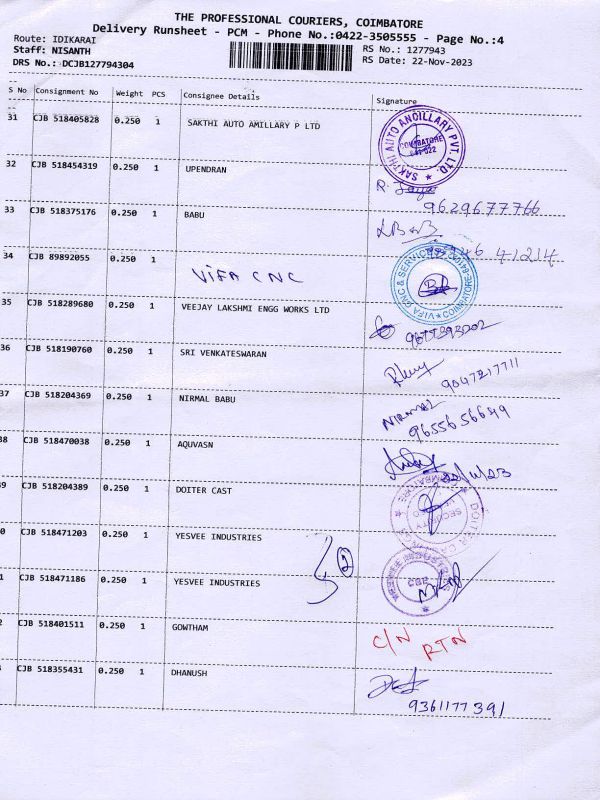 THE PROFESSIONAL COURIERS, COIMBATORE
Delivery Runsheet - PCM - Phone No.:0422-3505555 - Page No.:4
Route: IDIKARAI RS No.: 1277943
Staff: NISANTH RS Date: 22-Nov-2023
DRS No.: DCJB127794304
S No Consignment No Weight PCS Consignee Details Signature
31 CJB 518405828 0.250 1 SAKTHI AUTO AMILLARY P LTD
SAKTHI AUTO ANCILLARY PVT. LTD.
COIMBATORE
641 022
32 CJB 518454319 0.250 1 UPENDRAN
9629677766
33 CJB 518375176 0.250 1 BABU
41214
34 CJB 89892055 0.250 1 VIFA CNC
VIFA CNC & SERVICES COIMBATORE
35 CJB 518289680 0.250 1 VEEJAY LAKSHMI ENGG WORKS LTD
36 CJB 518190760 0.250 1 SRI VENKATESWARAN
9047217711
37 CJB 518204369 0.250 1 NIRMAL BABU
NIRMAL
9655656649
38 CJB 518470038 0.250 1 AQUVASN
9 CJB 518204389 0.250 1 DOITER CAST
SECURITY
0 CJB 518471203 0.250 1 YESVEE INDUSTRIES
2
1 CJB 518471186 0.250 1 YESVEE INDUSTRIES
2 CJB 518401511 0.250 1 GOWTHAM
C/N RTN
CJB 518355431 0.250 1 DHANUSH
9361177391